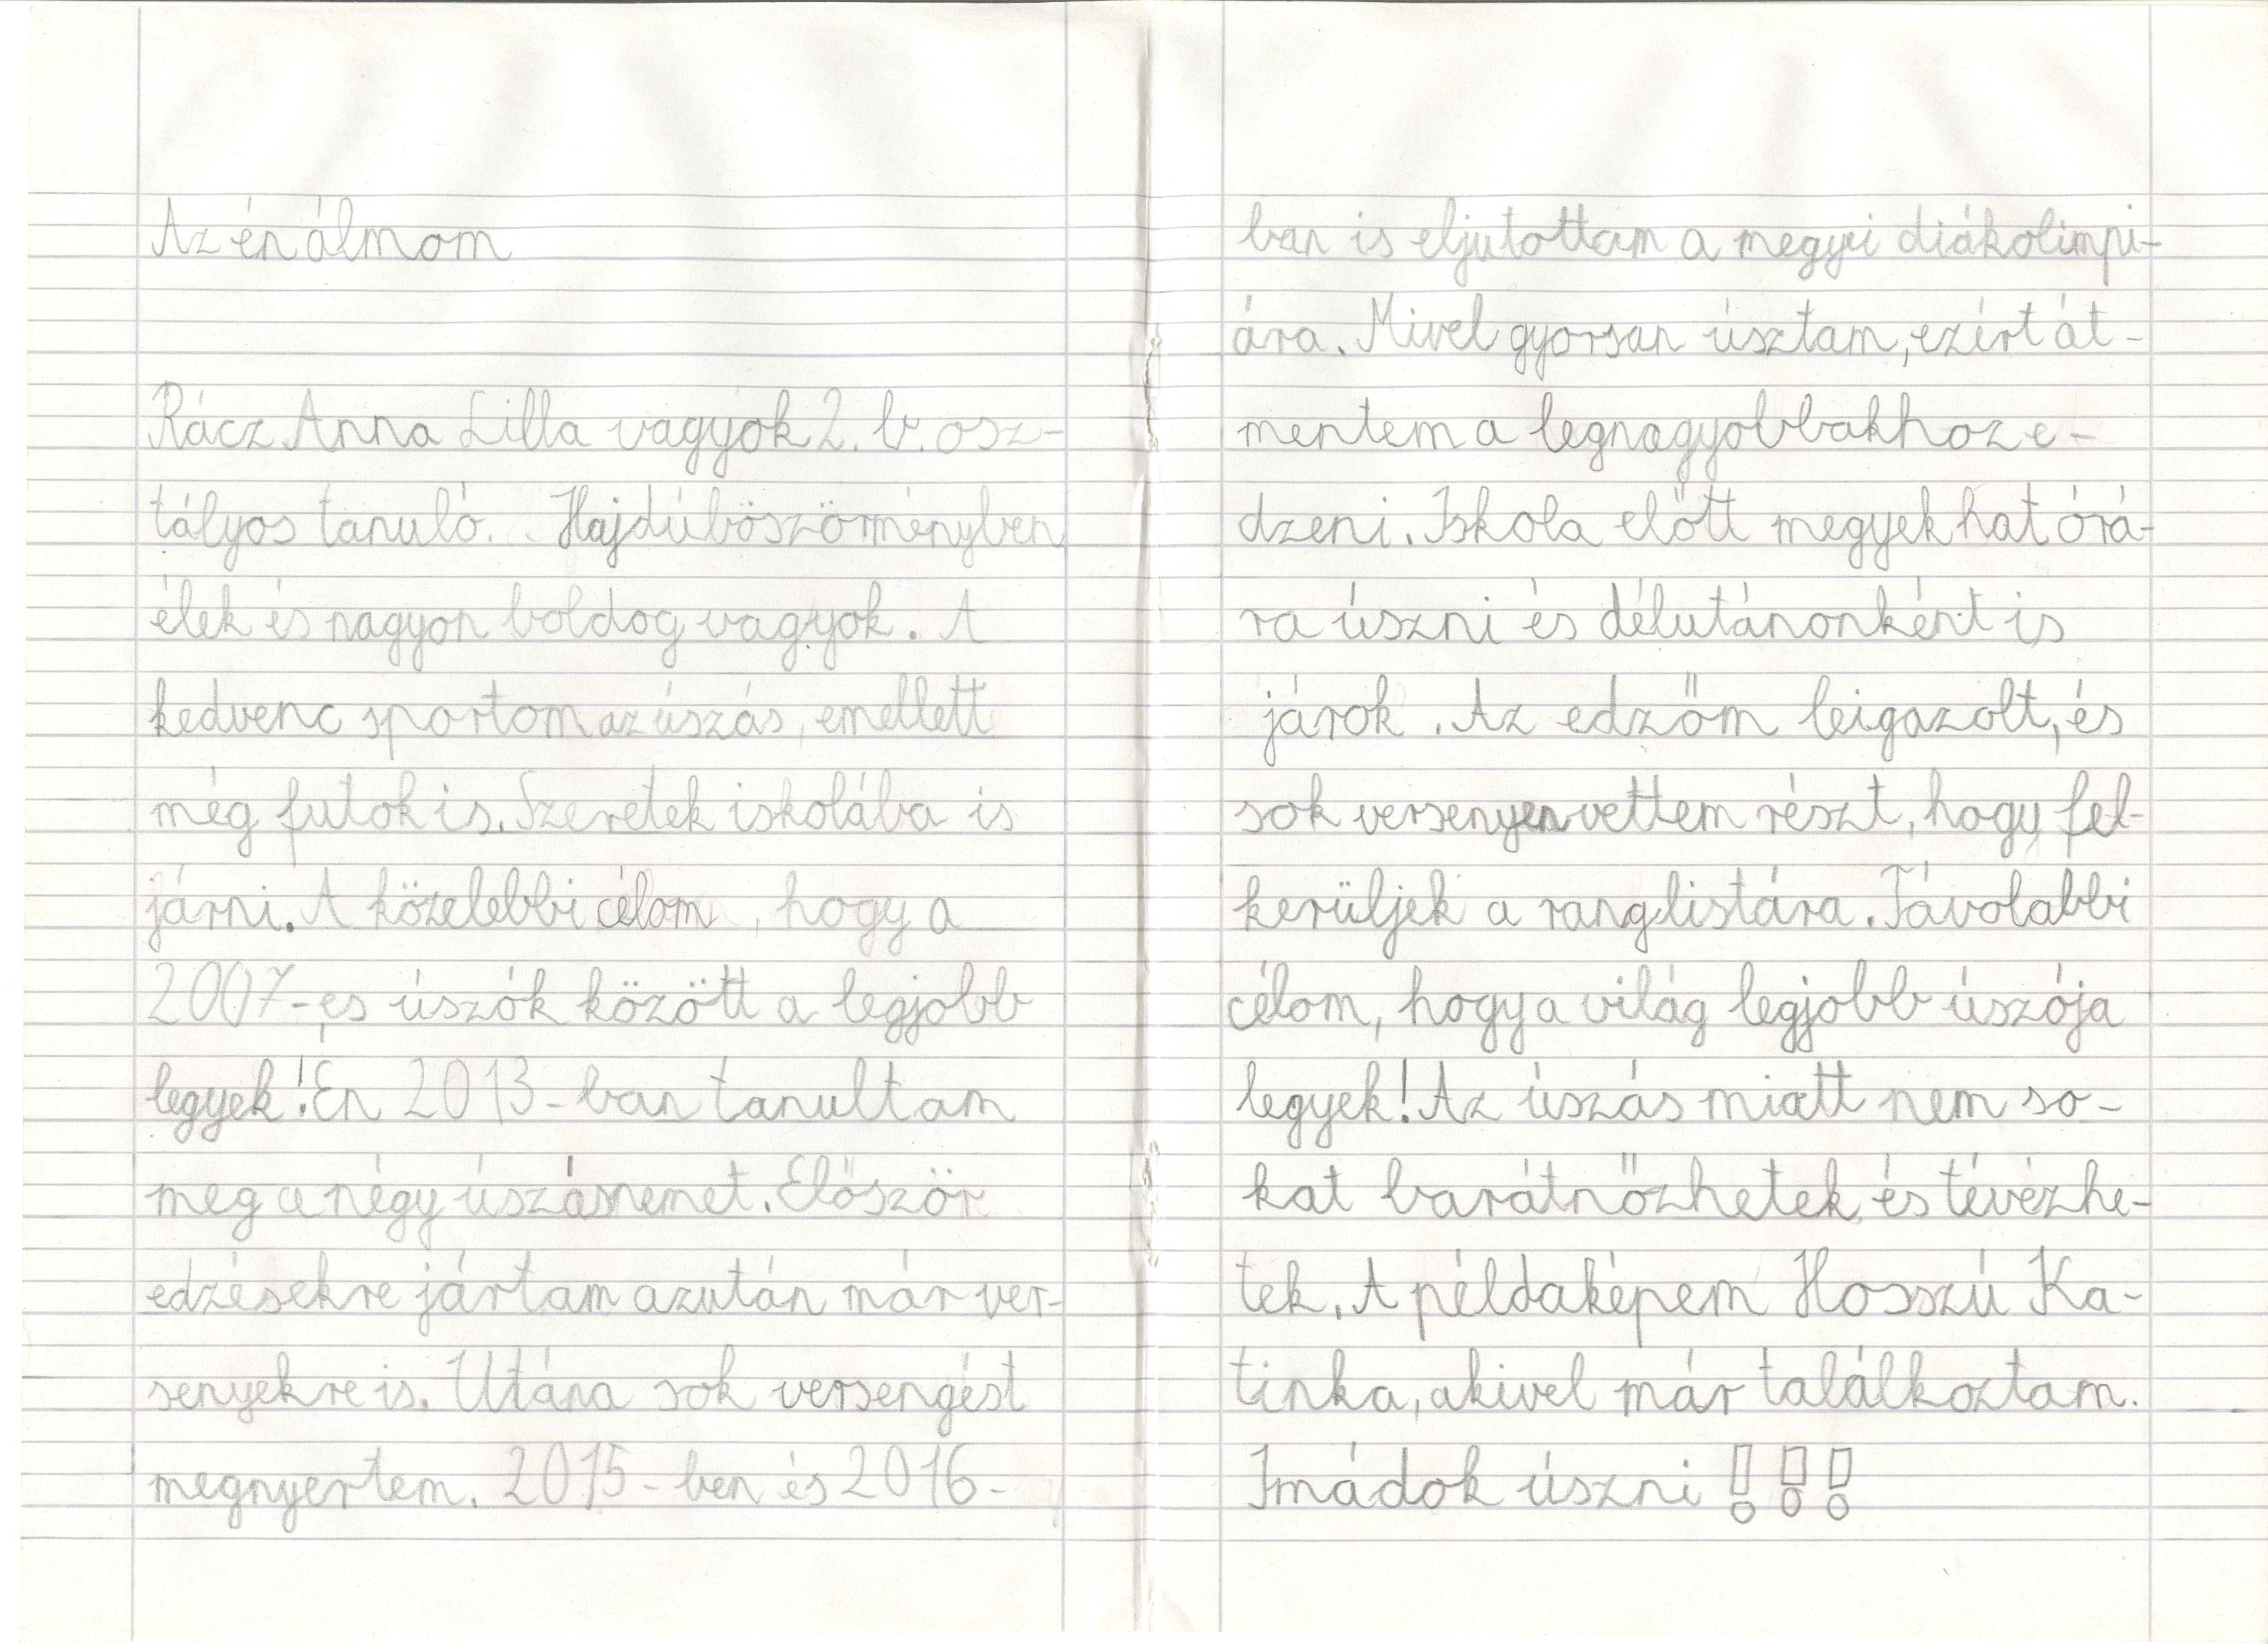 Az én álmom
Rácz Anna Lilla vagyok 2. b. osz-
tályos tanuló. Hajdúböszörményben
élek és nagyon boldog vagyok. A
kedvenc sportom az úszás, emellett
még futok is. Szeretek iskolába is
járni. A közelebbi célom, hogy a
2007-es úszók között a legjobb
legyek! Én 2013-ban tanultam
meg a négy úszásnemet. Először
edzésekre jártam azután már ver-
senyekre is. Utána sok versengést
megnyertem. 2015-ben és 2016-
ban is eljutottam a megyei diákolimpi-
ára. Mivel gyorsan úsztam, ezért át-
mentem a legnagyobbakhoz e-
dzeni. Iskola előtt megyek hat órá-
ra úszni és délutánonként is
járok. Az edzőm leigazolt, és
sok versenyen vettem részt, hogy fel-
kerüljek a ranglistára. Távolabbi
célom, hogy a világ legjobb úszója
legyek! Az úszás miatt nem so-
kat barátnőzhetek és tévézhe-
tek. A példaképem Hosszú Ka-
tinka, akivel már találkoztam.
Imádok úszni !!!